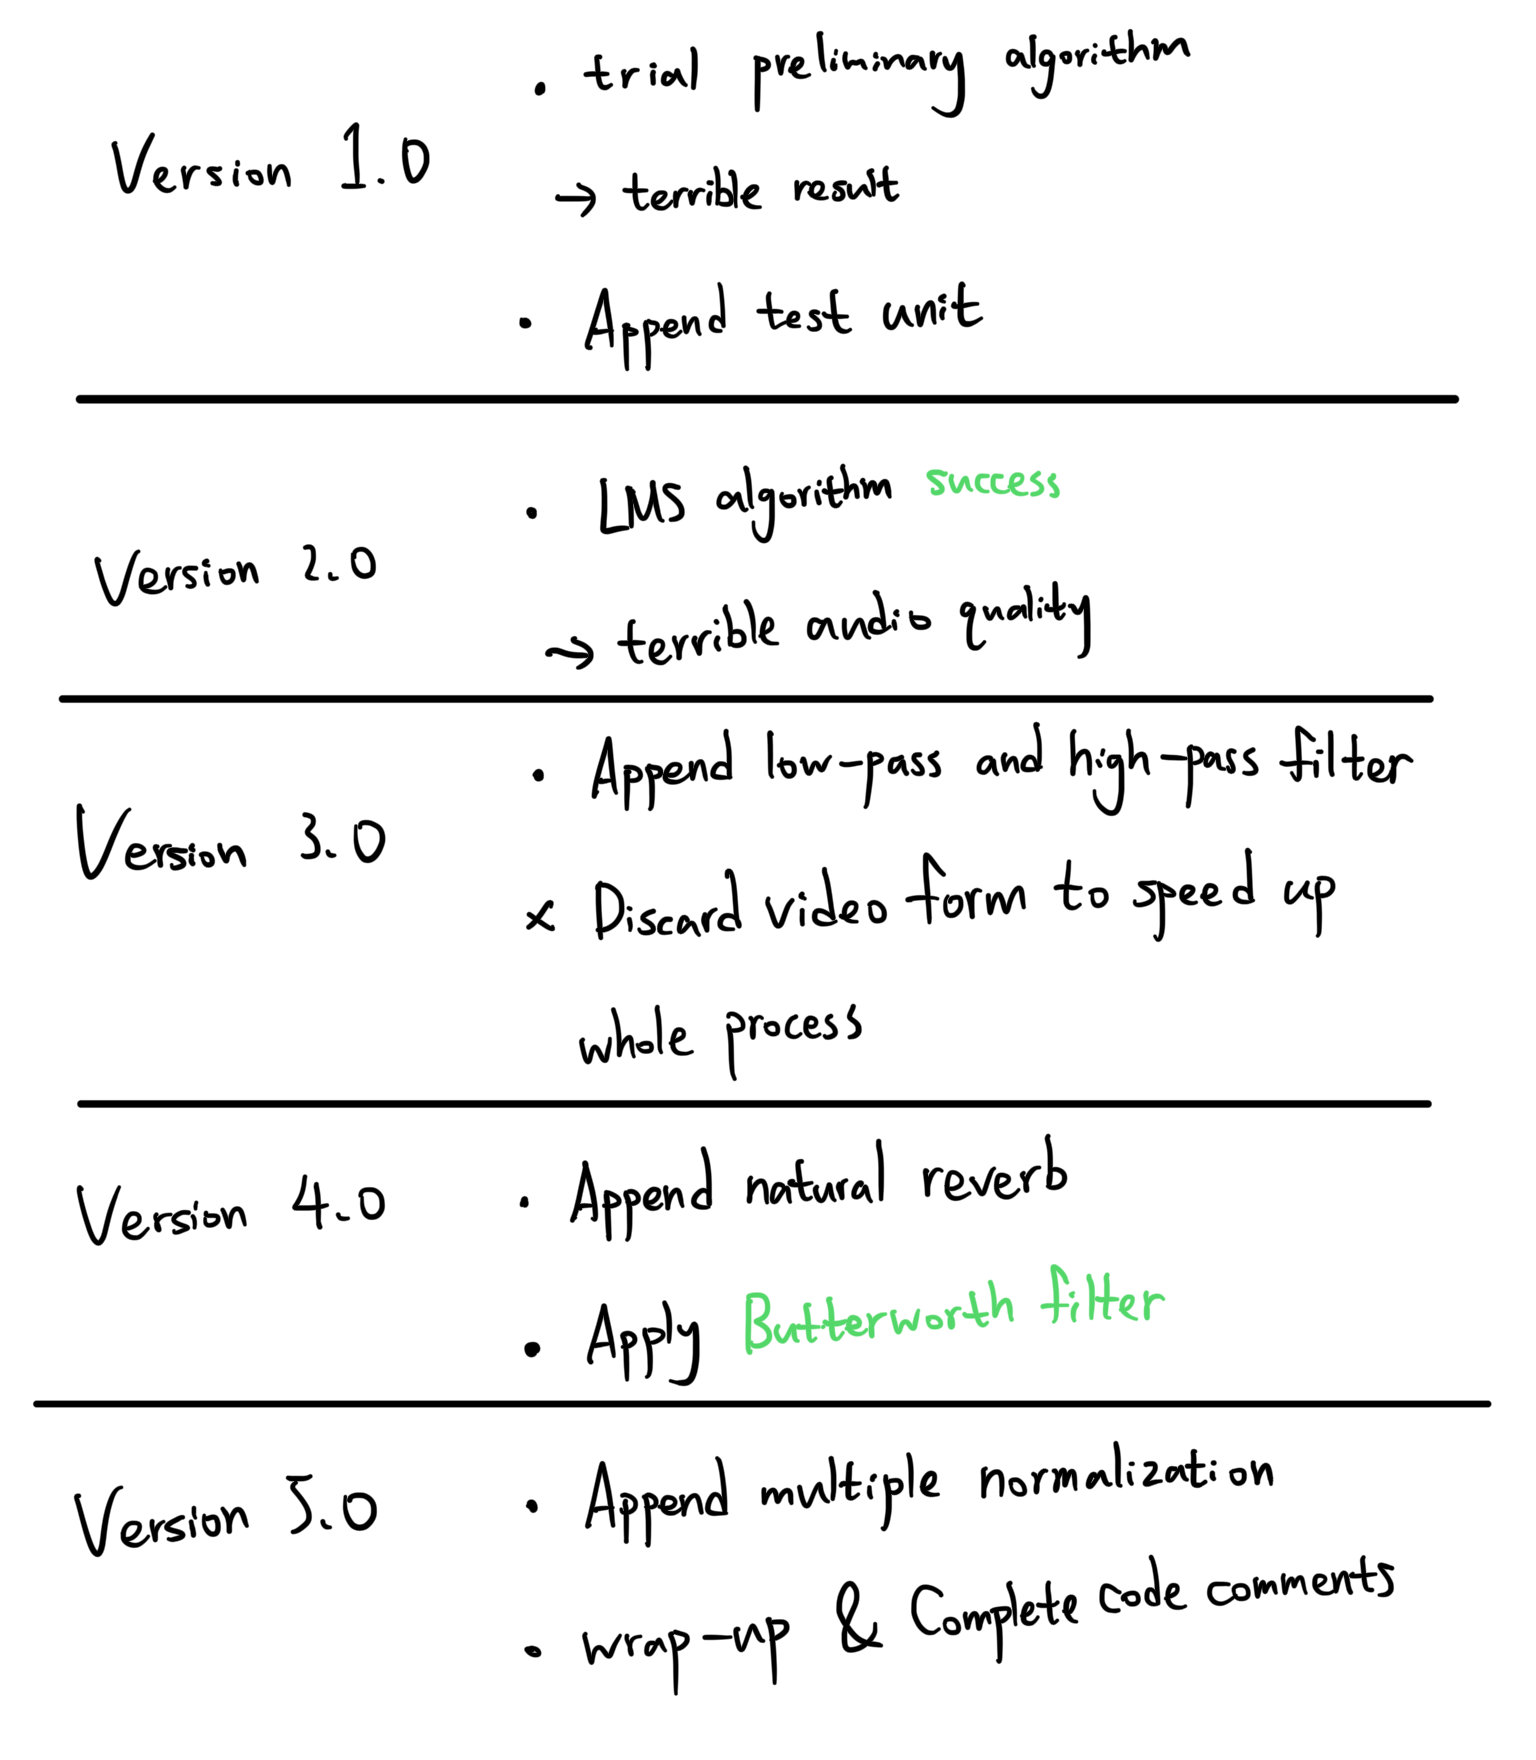 • trial preliminary algorithm
Version 1.0
→ terrible result
• Append test unit
• LMS algorithm success
Version 2.0
→ terrible audio quality
• Append low-pass and high-pass filter
Version 3.0
× Discard video form to speed up
whole process
Version 4.0 • Append natural reverb
• Apply Butterworth filter
Version 5.0 • Append multiple normalization
• wrap-up & Complete code comments